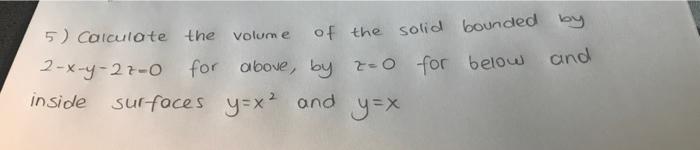 5) Calculate the volume of the solid bounded by
2-x-y-2z=0 for above, by z=0 for below and
inside surfaces y=x² and y=x